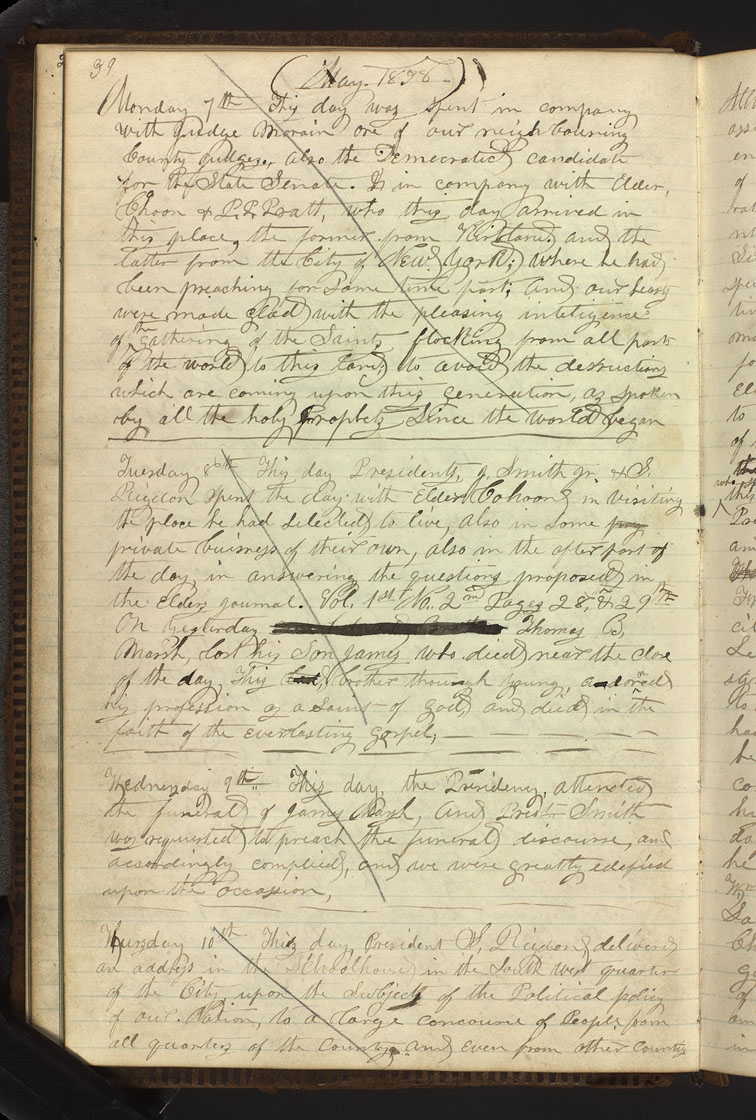 39
(May. 1838—)
Monday 7th This day was spent in company
with Judge Morain one of our neighbouring
County judges, also the Democratic candidate
for the State Senate. & in company with Elder,
Choon & P. P. Pratt, who this day arrived in
this place, the former from Kirtland, and the
latter from the City of New York, where he had
been preaching for Some time past, and our hearts
were made glad with the pleasing inteligence
of the gathering of the Saints flocking from all parts
of the world to this land, to avoid the destructions
which are coming upon this generation, as spoken
by all the holy Prophets Since the world began
Tuesday 8th This day Presidents, J. Smith jr. & S.
Rigdon spent the day with Elder Cahoon in visiting
the place he had selected to live, also in some
private buisness of their own, also in the after part of
the day in answering the questions proposed in
the Elders journal. Vol. 1st No. 2nd Pages 28, & 29th
On Yesturday Thomas B,
Marsh, lost his Son James who died near the close
of the day, This brother though young, adored
his profession as a Saint of God, and died in the
faith of the everlasting gospel,
Wednesday 9th. This day, the Presidency, attended
the funeral of James Marsh, and Prest Smith
was requested to preach the funeral discourse, and
accordingly complied, and we were greatly edified
upon the occassion,
Thursday 10th This day, President S, Rigdon, delivered
an address in the Schoolhouse in the South west quarter
of the City, upon the Subject of the Political policy
of our Nation, to a large concourse of People from
all quarters of the County, and even from other Countys